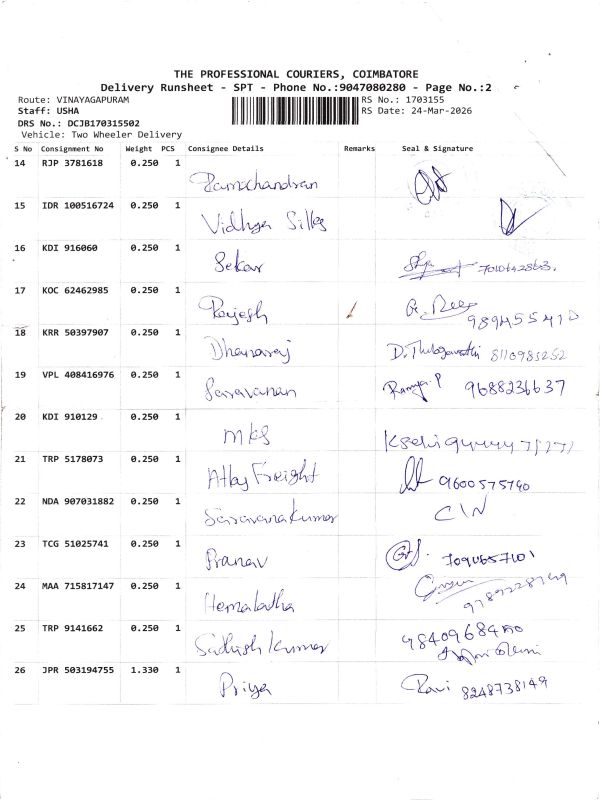 THE PROFESSIONAL COURIERS, COIMBATORE
Delivery Runsheet - SPT - Phone No.:9047080280 - Page No.:2
Route: VINAYAGAPURAM RS No.: 1703155
Staff: USHA RS Date: 24-Mar-2026
DRS No.: DCJB170315502
Vehicle: Two Wheeler Delivery
S No Consignment No Weight PCS Consignee Details Remarks Seal & Signature
14 RJP 3781618 0.250 1 Ramachandran
15 IDR 100516724 0.250 1 Vidhya Silks
16 KDI 916060 0.250 1 Sekar
17 KOC 62462985 0.250 1 Rajesh
18 KRR 50397907 0.250 1 Dhanaraj 8110985252
19 VPL 408416976 0.250 1 Saravanan Ramya.P 9688236637
20 KDI 910129 0.250 1 MKS
21 TRP 5178073 0.250 1 Atby Freight 9600575740
22 NDA 907031882 0.250 1 Saravanakumar
23 TCG 51025741 0.250 1 Pranav
24 MAA 715817147 0.250 1 Hemalatha
25 TRP 9141662 0.250 1 Sathish Kumar
26 JPR 503194755 1.330 1 Priya Ravi 8248738149